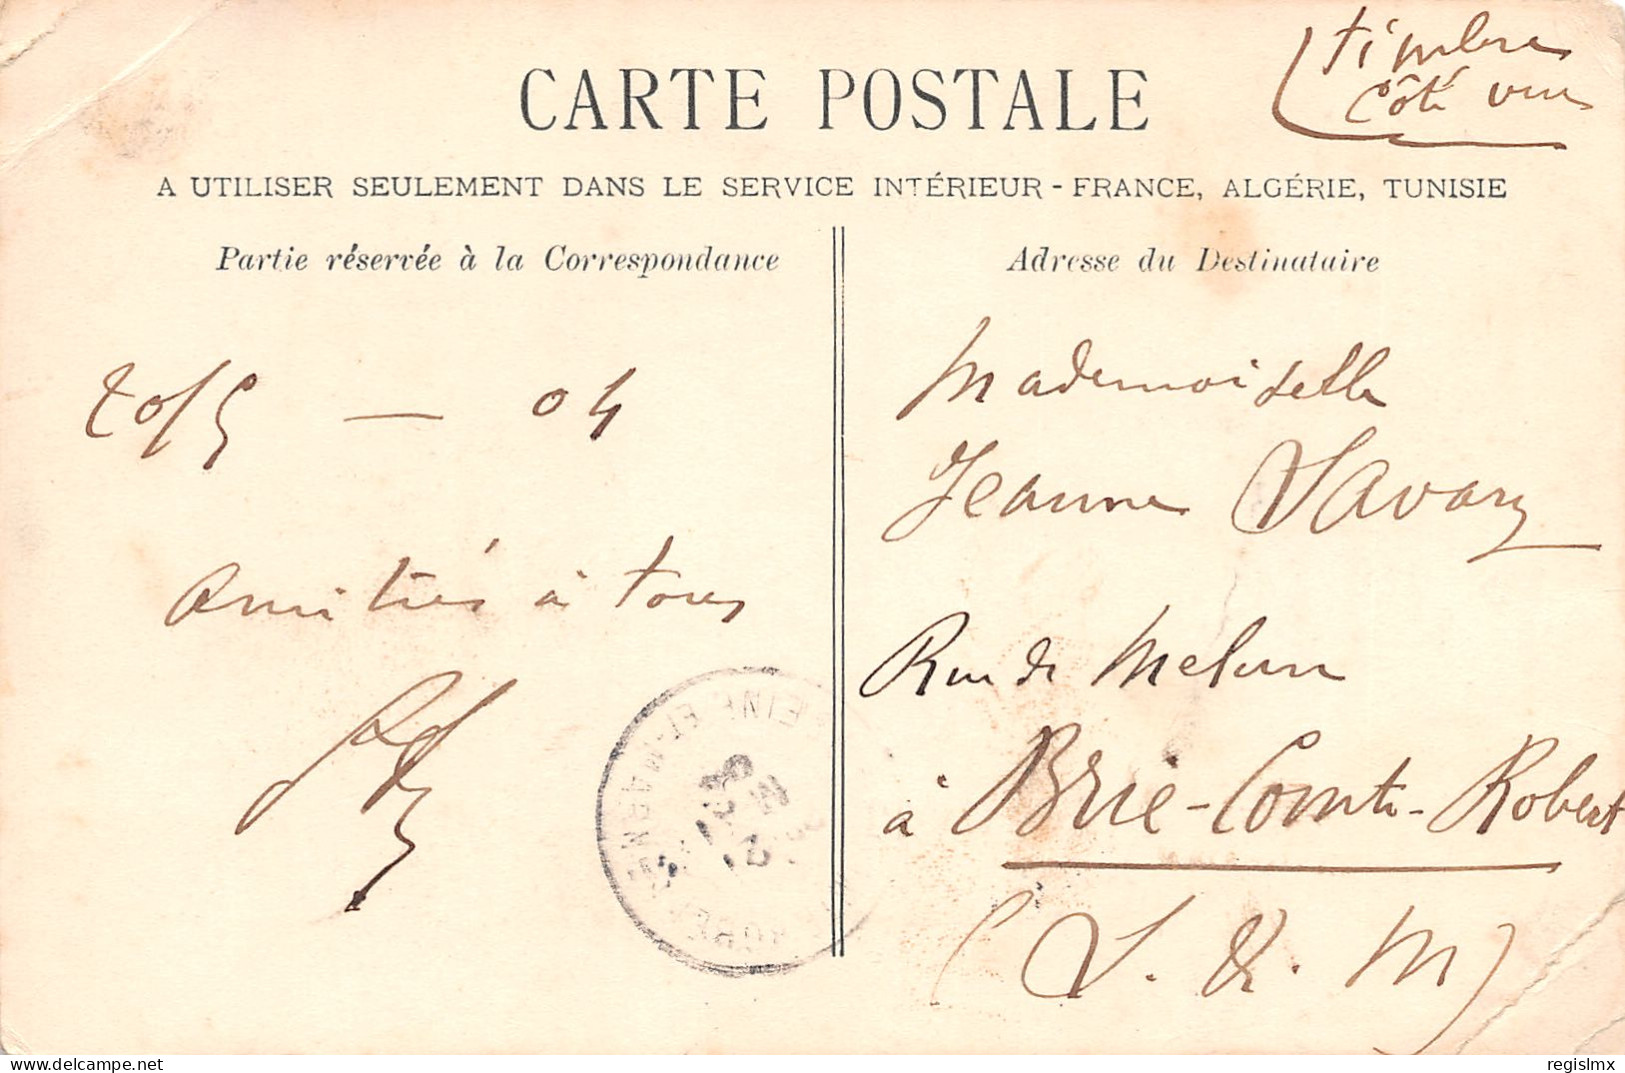 timbre
côté vue
CARTE POSTALE
A UTILISER SEULEMENT DANS LE SERVICE INTÉRIEUR - FRANCE, ALGÉRIE, TUNISIE
Partie réservée à la Correspondance
20/5 — 04
Amitiés à tous
Adresse du Destinataire
Mademoiselle
Jeanne Savary
Rue de Melun
à Brie-Comte-Robert
(S. & M)
SEINE-ET-MARNE
delcampe.net
regislmx